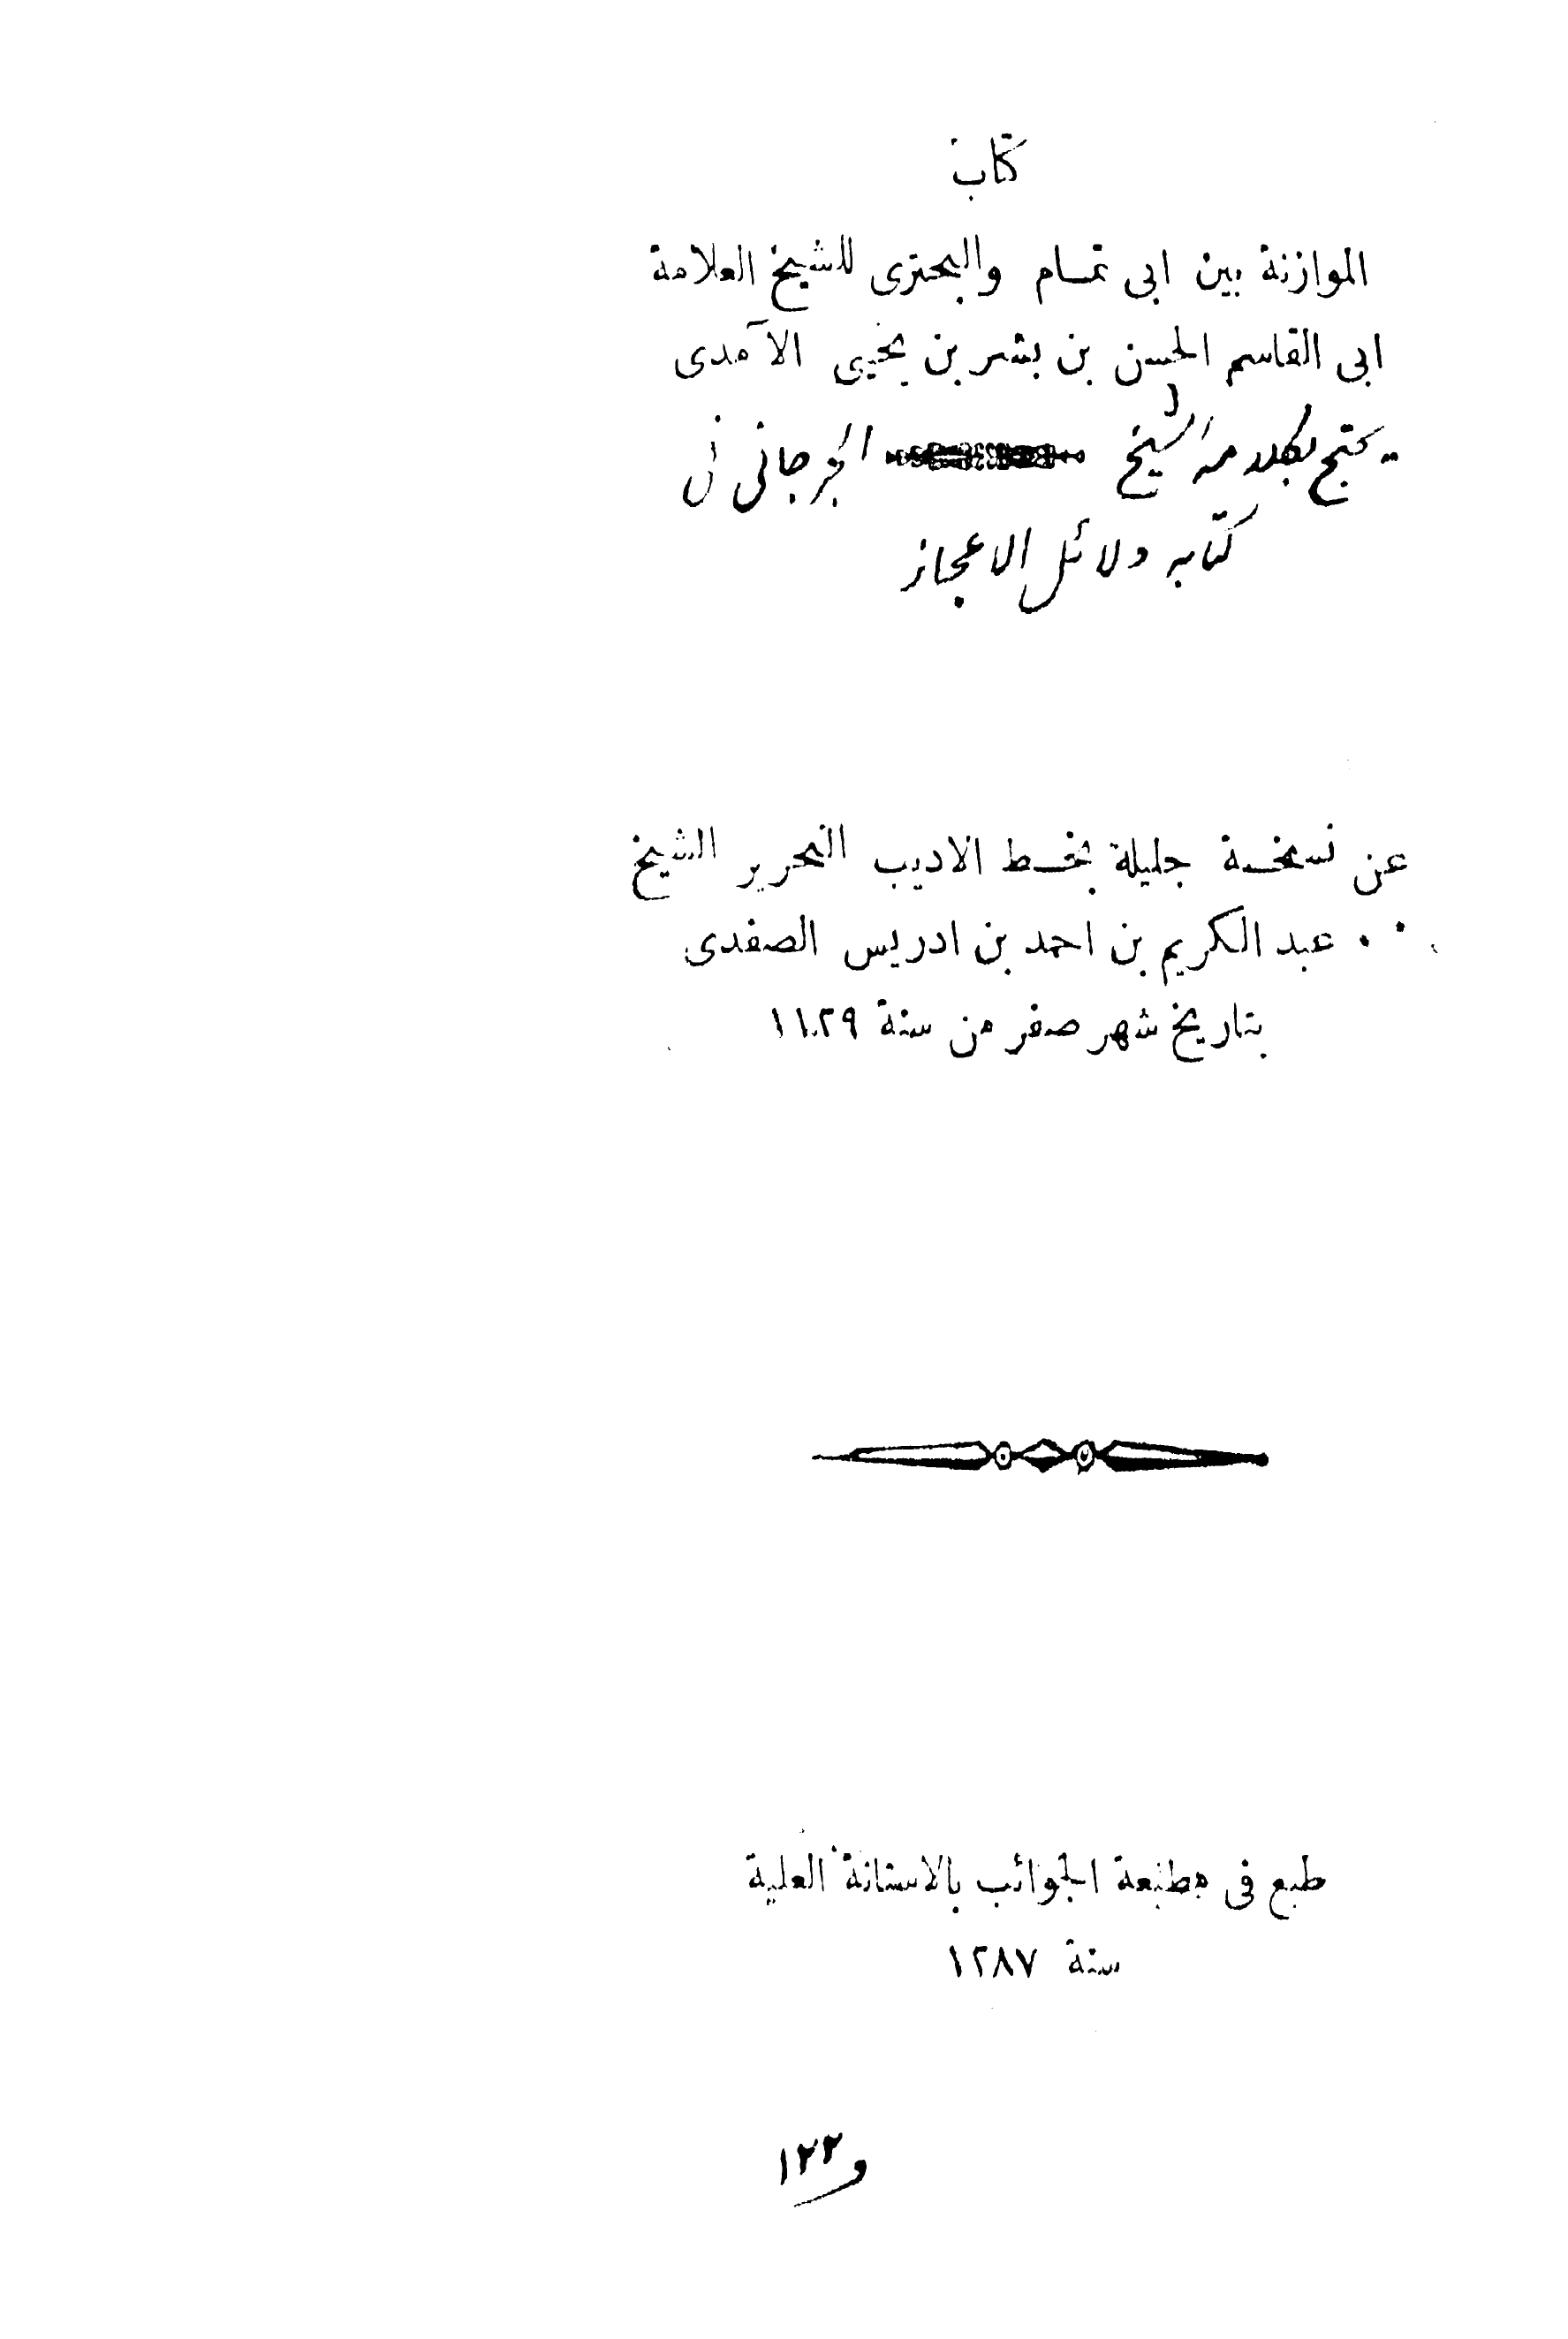 كتاب
الموازنة بين ابى تمام والبحترى للشيخ العلامة
ابى القاسم الحسن بن بشر بن يحيى الآمدى
يحتج بكلامه الشيخ الجرجانى فى
كتابه دلائل الاعجاز
عن نسخة جليلة بخط الاديب النحرير الشيخ
عبد الكريم بن احمد بن ادريس الصفدى
بتاريخ شهر صفر من سنة ١١٢٩
طبع فى مطبعة الجوائب بالاستانة العلية
سنة ١٢٨٧
و ١٢٢